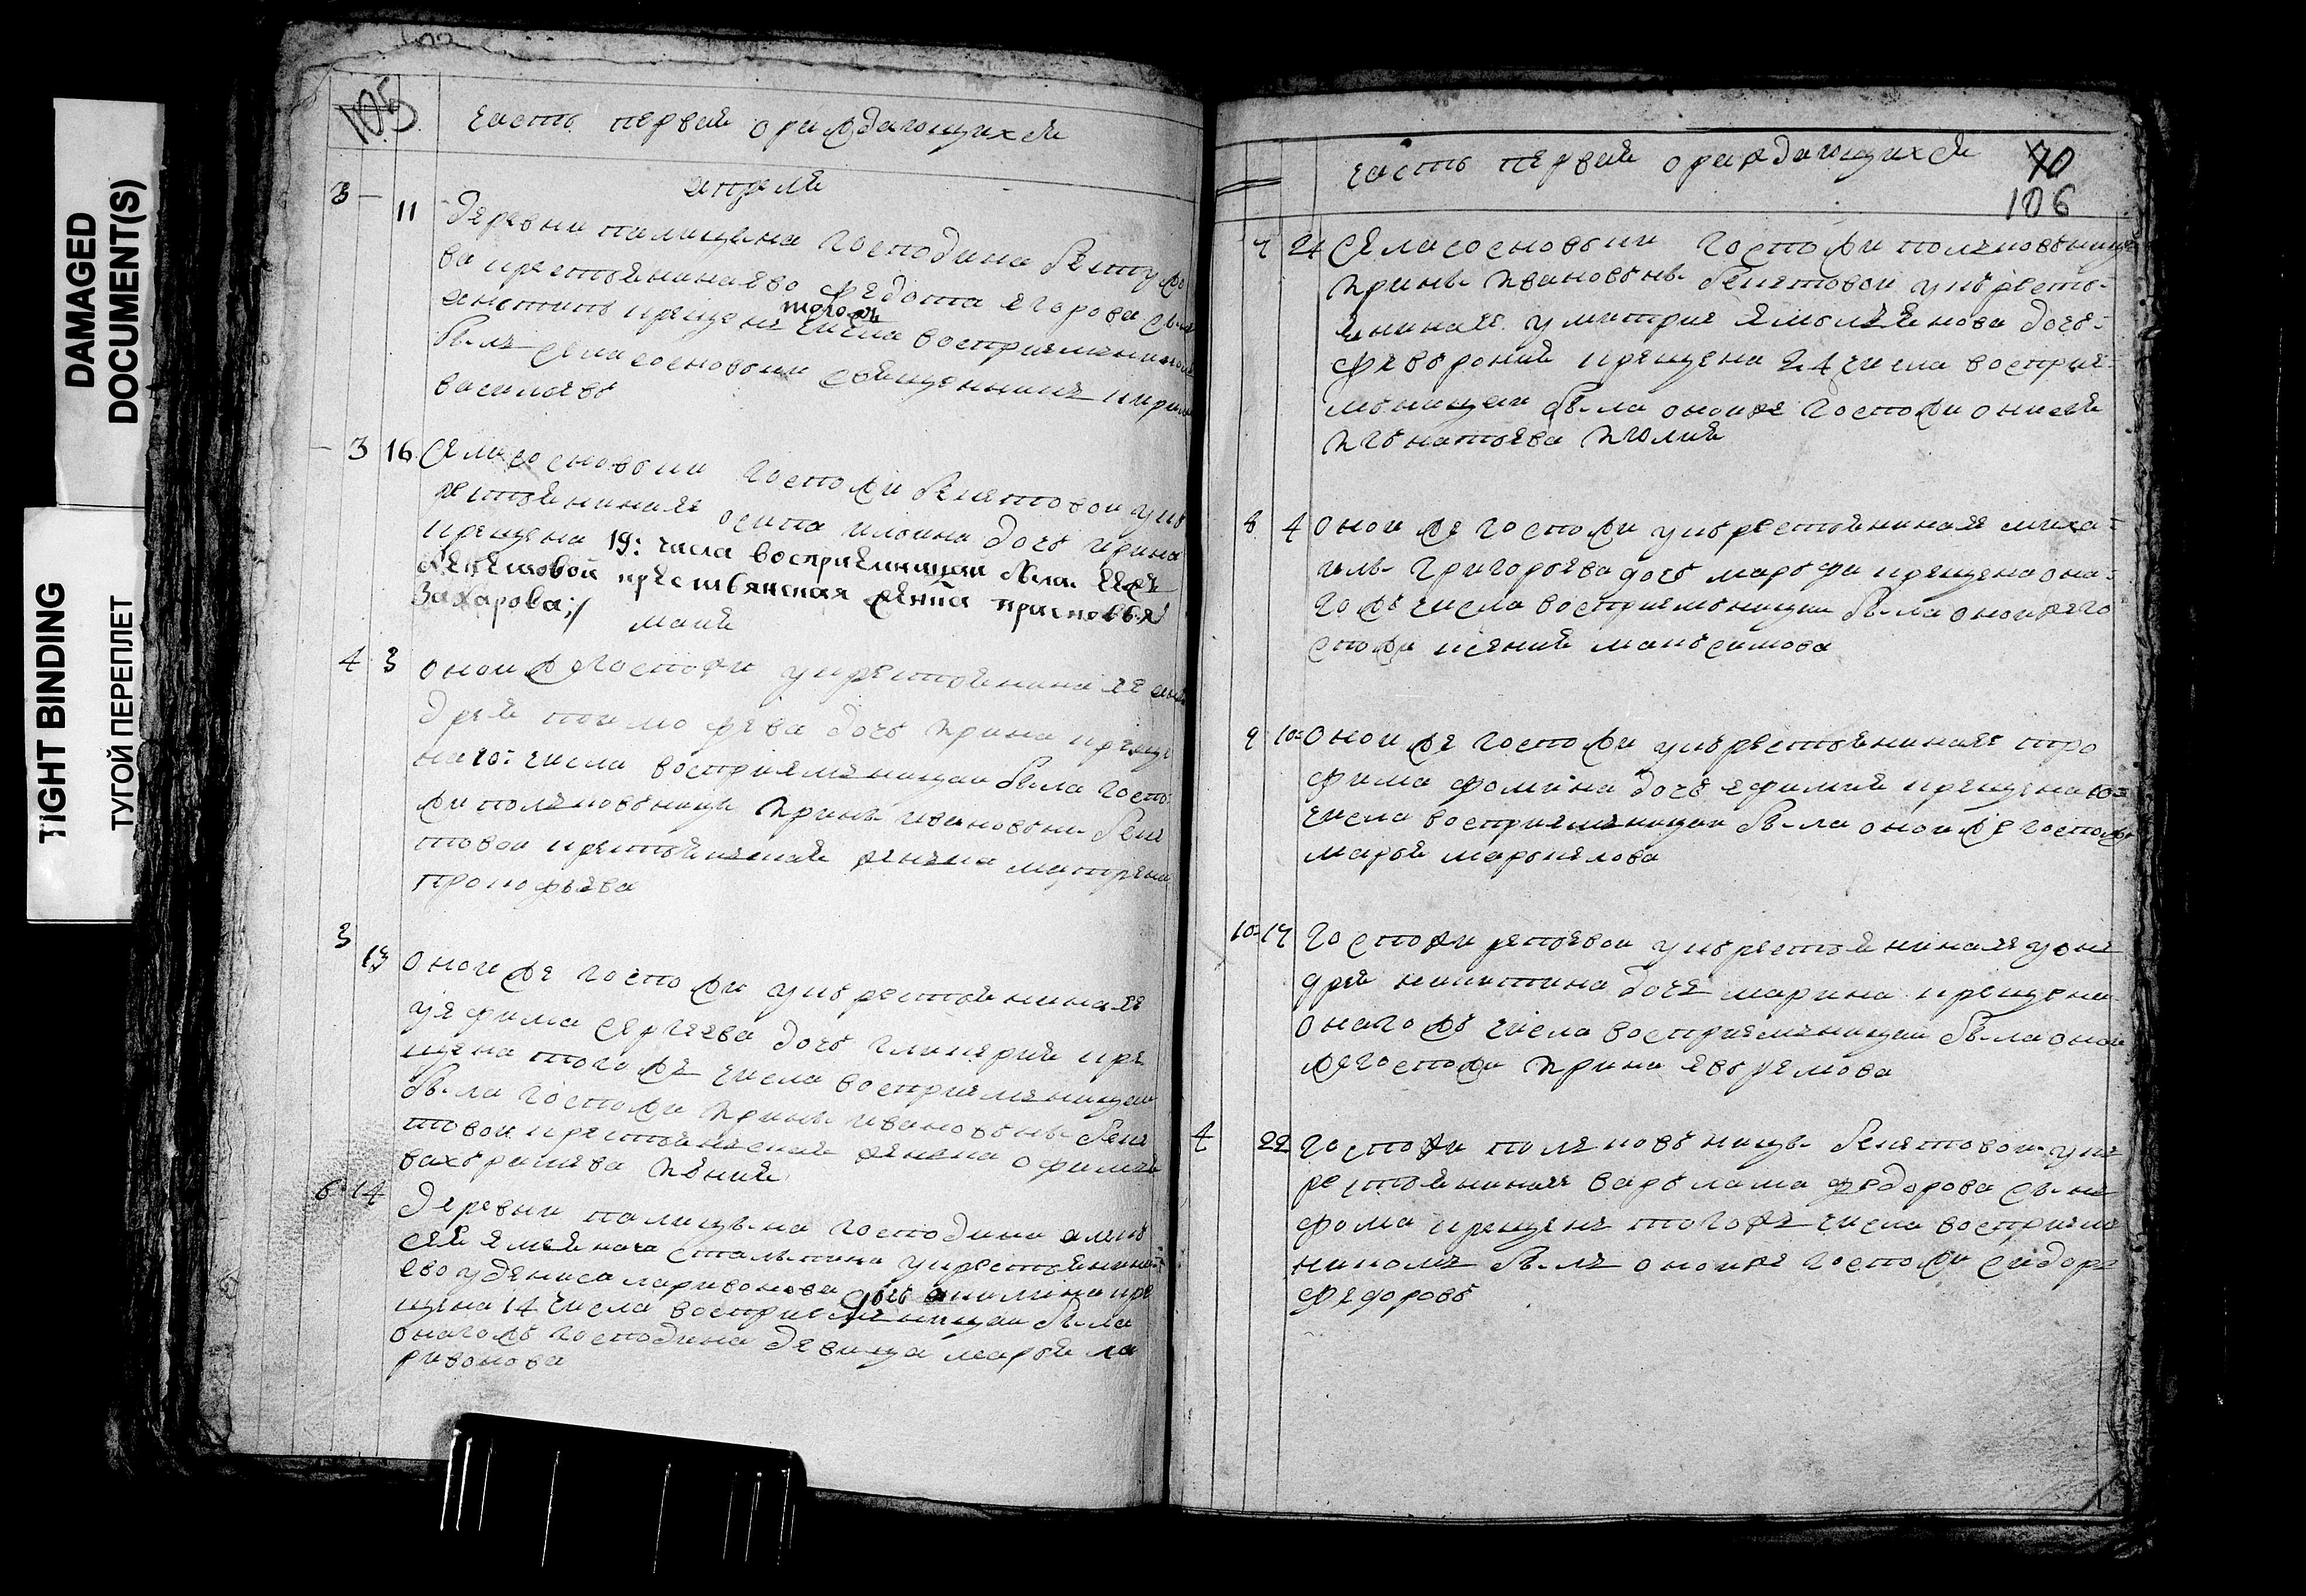 DAMAGED
DOCUMENT(S)
TIGHT BINDING
ТУГОЙ ПЕРЕПЛЕТ
105
часть первая о раждающихся
апреля
3 11 деревни палицына господина
ва крестьянина ево федота егорова сынъ
крещенъ тогожъ числа восприемникомъ
былъ села сосновки священникъ кирилъ
васильевъ
3 16 села сосновки госпожи бекетовой у кре
стьянина ея осипа ильина дочь ирина
крещена 19: числа восприемницей была ее же
бекетовой крестьянская жонка прасковья
Захарова;/
маия
4 3 оной же госпожи у крестьянина ея ан
дрея тимофева дочь ирина креще
на 10: числа восприемницей была госпо
жи полковницы ирины ивановны беке
товой крестьянская жонка матрена
прокофьева
3
13 оной же госпожи у крестьянина ея
уефима сергеева дочь гликерия кре
щена тогожъ числа восприемницей
была госпожи ирины ивановны беке
товой крестьянская жонка офимья
вахрамева июния
6 14 деревни палицына господина алек
сея емельяноча столыпина у крестьянина
ево у дениса ларивонова дочь акилина кре
щена 14 числа восприемницей была
оногожъ господина девица марья ла
ривонова
часть первая о раждающихся 70
106
7 24 села сосновки госпожи полковницы
ирины ивановны бекетовой у кресть
янина ея умитрия емельянова дочь
феврония крещена 24 числа восприе
мницей была оной же госпожи онисья
игнатьева июлия
8 4 оной же госпожи у крестьянина ея миха
илы григорьева дочь марфа крещена она
гожъ числа восприемницей была оной же го
спожи ксения максимова
9 10 оной же госпожи у крестьянина ея тро
фима фомина дочь ефимия крещена 10
числа восприемницей была оной же госпожи
марья маркелова
10 17 госпожи репьевой у крестьянина ея уон
дрея никитина дочь марина крещена
оногожъ числа восприемницей была оной
же госпожи ирина евремова
4 22 госпожи полковницы бекетовой у кре
стьянина ея варлама федорова сынъ
фома крещенъ тогожъ числа восприем
никомъ былъ оной же госпожи сидоръ
федоровъ